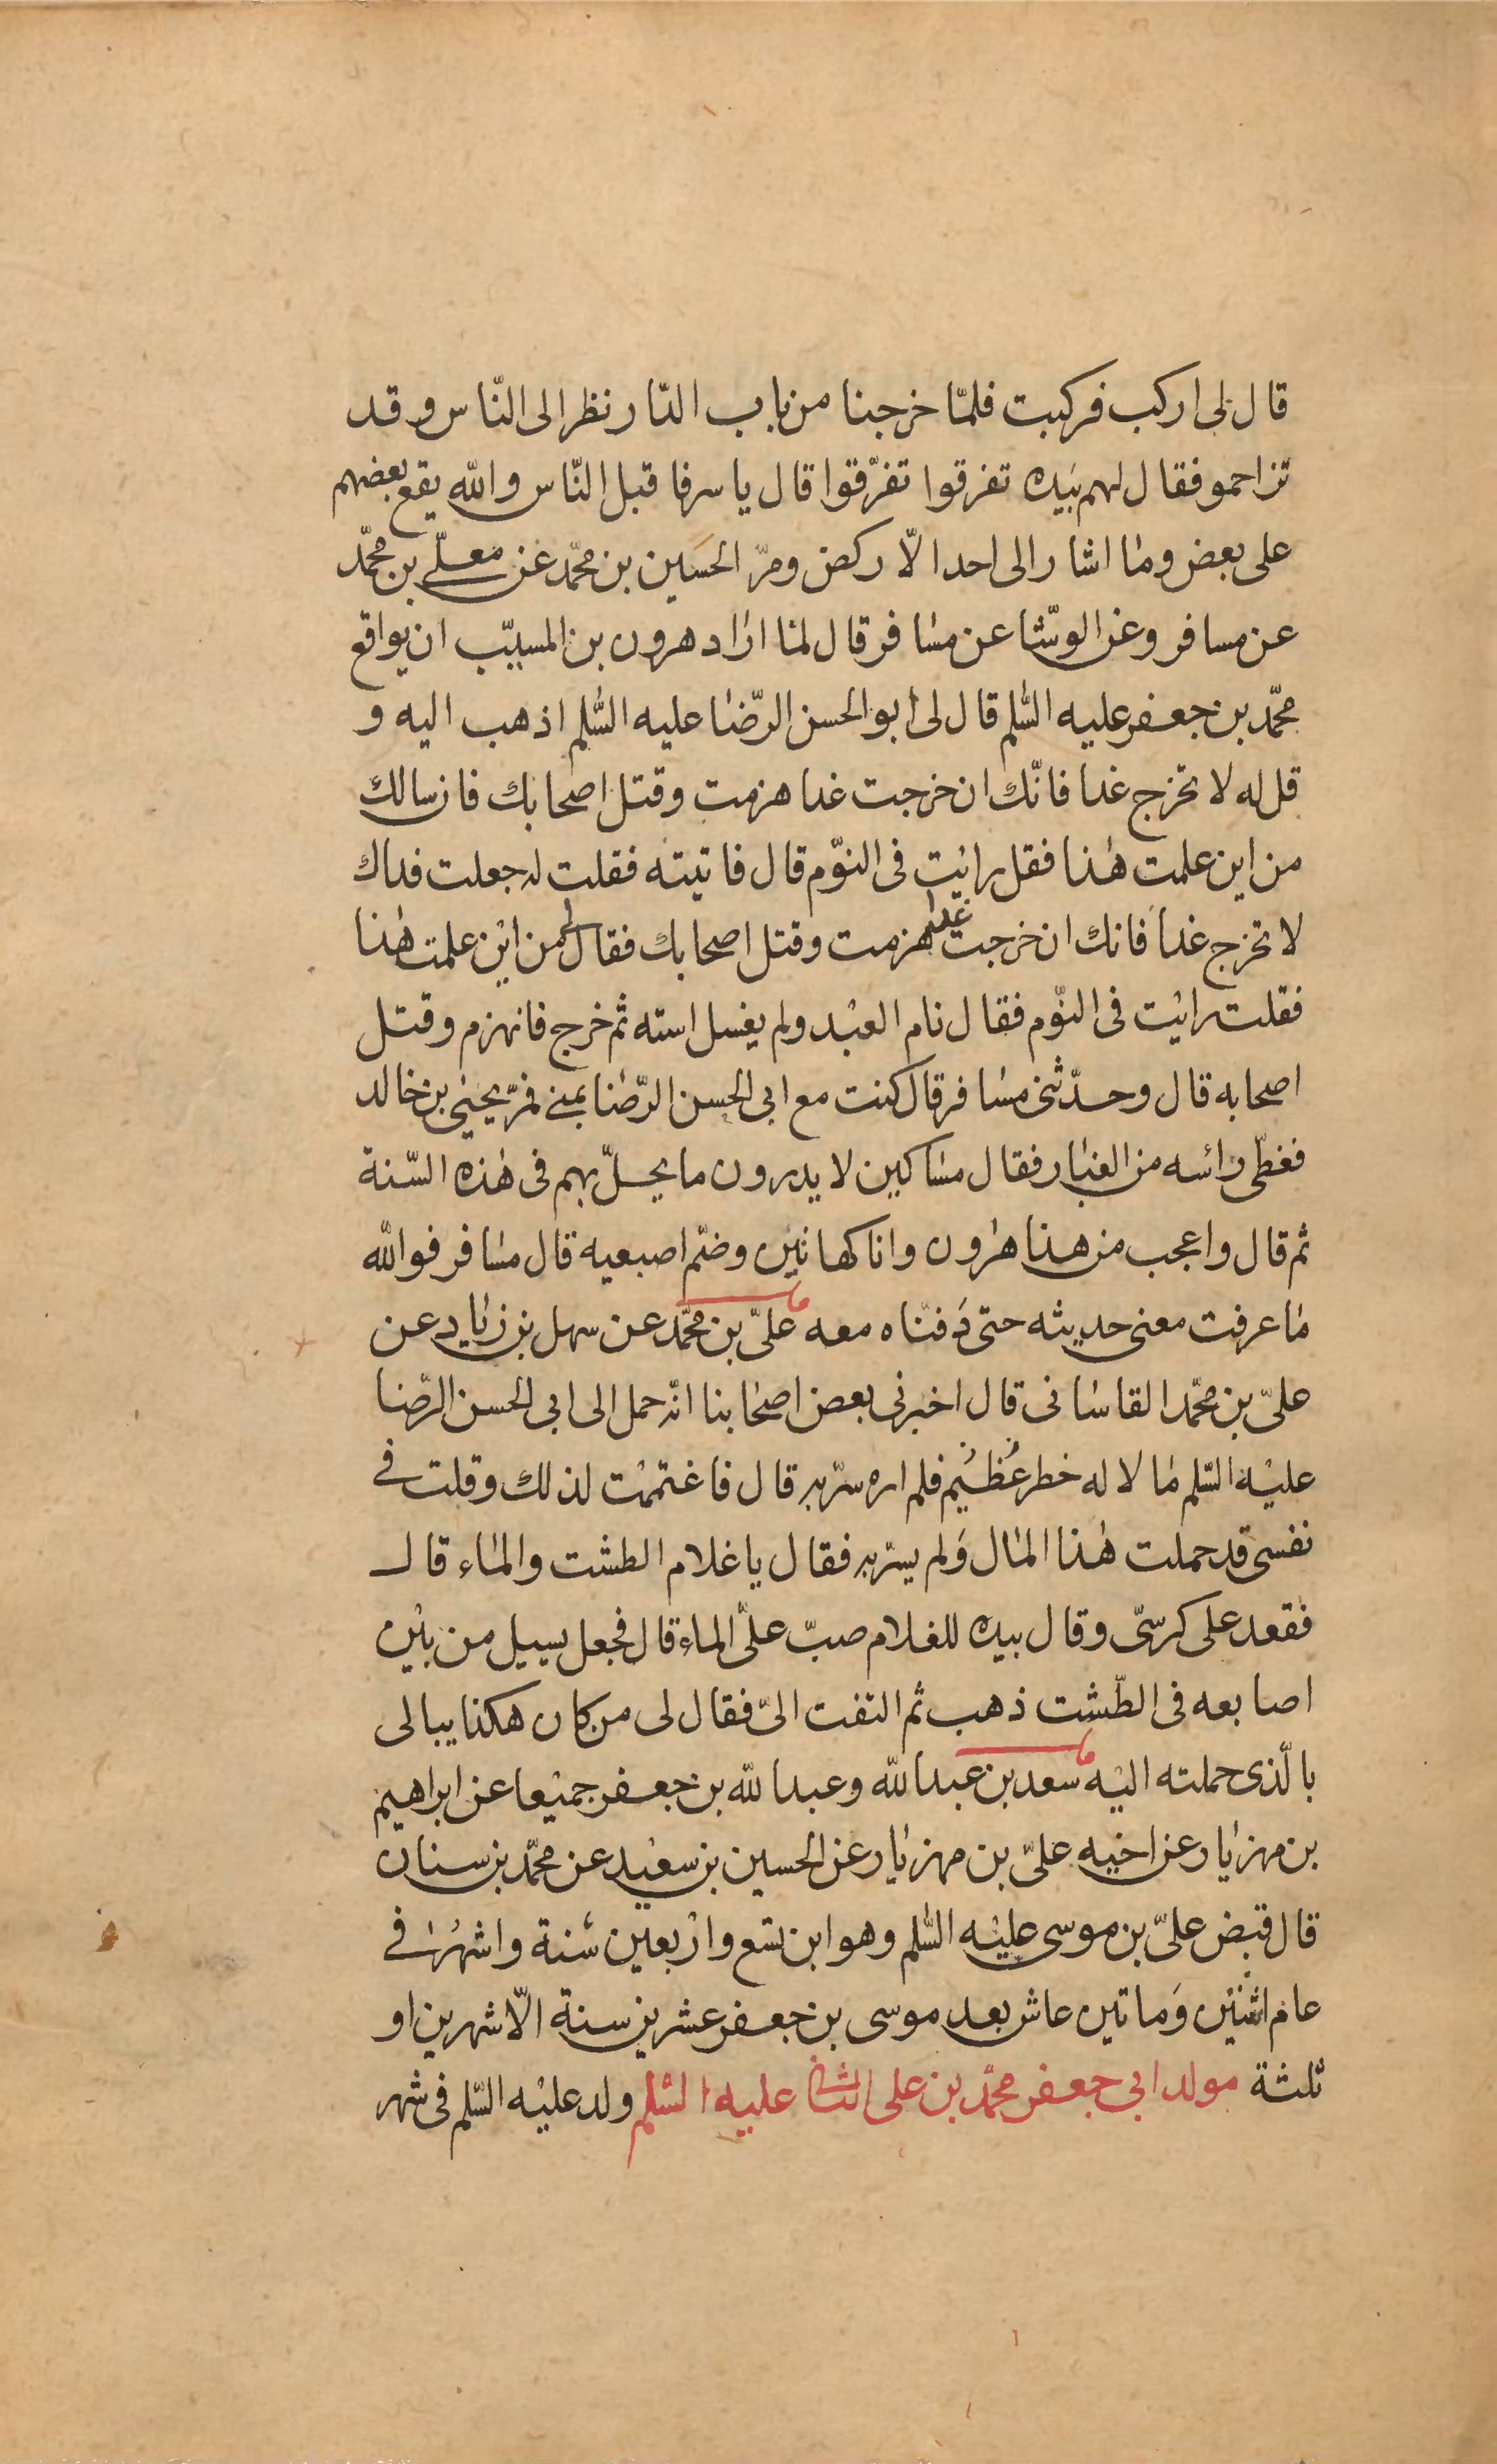 قال لی ارکب فرکبت فلمّا خرجنا من باب الدّار نظر الی النّاس وقد
تزاحمو فقال لهم بیده تفرقوا تفرّقوا قال یاسر فاقبل النّاس والله یقع بعضهم
علی بعض وما اشار الی احد الّا رکض ومرّ الحسین بن محمّد عن معلّی بن محمّد
عن مسافر وعن الوشّا عن مسافر قال لما اراد هرون بن المسیّب ان یواقع
محمّد بن جعفر علیه السّلم قال لی ابو الحسن الرّضا علیه السّلم اذهب الیه و
قل له لا تخرج غدا فانّک ان خرجت غدا هزمت وقتل اصحابک فان سالک
من این علمت هذا فقل رایت فی النوّم قال فاتیته فقلت له جعلت فداک
لا تخرج غدا فانک ان خرجت غدا هزمت وقتل اصحابک فقال لی من این علمت هذا
فقلت رایت فی النوّم فقال نام العبد ولم یغسل استه ثم خرج فانهزم وقتل
اصحابه قال وحدّثنی مسافر قال کنت مع ابی الحسن الرّضا بمنی فمرّ یحیی بن خالد
فغطّی رائسه من الغبار فقال مساکین لا یدرون ما یحلّ بهم فی هذه السّنة
ثم قال واعجب من هذا هرون وانا کهاتین وضمّ اصبعیه قال مسافر فوالله
ما عرفت معنی حدیثه حتی دفنّاه معه علیّ بن محمّد عن سهل بن زیاد عن
علیّ بن محمّد القاسانی قال اخبرنی بعض اصحابنا انّه حمل الی ابی الحسن الرّضا
علیه السّلم مالا له خطر عظیم فلم اره سرّ به قال فاغتممت لذلک وقلت فی
نفسی قد حملت هذا المال ولم یسرّ به فقال یا غلام الطشت والماء قال
فقعد علی کرسیّ وقال بیده للغلام صبّ علیّ الماء قال فجعل یسیل من بین
اصابعه فی الطّشت ذهب ثم التفت الیّ فقال لی من کان هکذا یبالی
بالّذی حملته الیه سعد بن عبد الله وعبد الله بن جعفر جمیعا عن ابراهیم
بن مهزیار عن اخیه علیّ بن مهزیار عن الحسین بن سعید عن محمّد بن سنان
قال قبض علیّ بن موسی علیه السّلم وهو ابن تسع واربعین سنة واشهر فی
عام اثنین وماتین عاش بعد موسی بن جعفر عشرین سنة الّا شهرین او
ثلثة مولد ابی جعفر محمّد بن علی الثانی علیه السّلم ولد علیه السّلم فی شهر